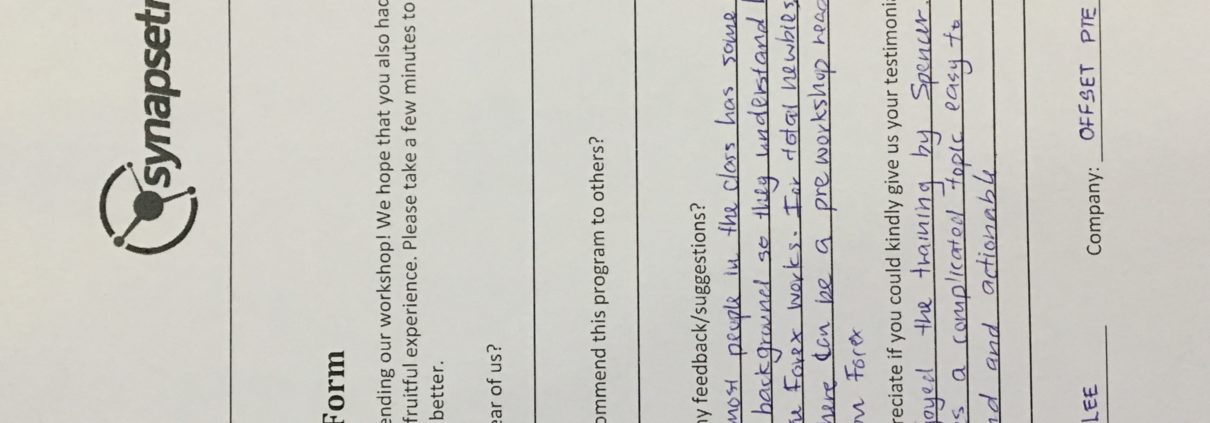 synapsetr
Form
ending our workshop! We hope that you also had
fruitful experience. Please take a few minutes to
better.
ear of us?
ommend this program to others?
ny feedback/suggestions?
most people in the class has some
background so they understand
Forex works. For total newbies,
here can be a pre workshop read
on Forex
reciate if you could kindly give us your testimoni
joyed the training by Spencer.
s a complicated topic easy to
nd and actionable
LEE Company: OFFSET PTE